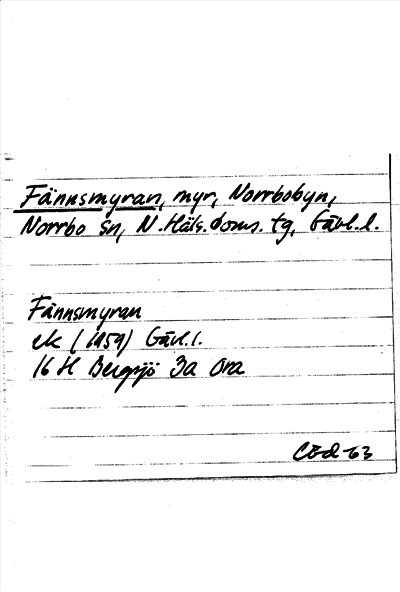 Fännsmyran, myr, Norrbobyn,
Norrbo sn, N. Häls. doms. tg, Gävl.l.
Fännsmyran
ek (1959) Gävl.l.
16 H Bergsjö 3a Ora
CEd -63